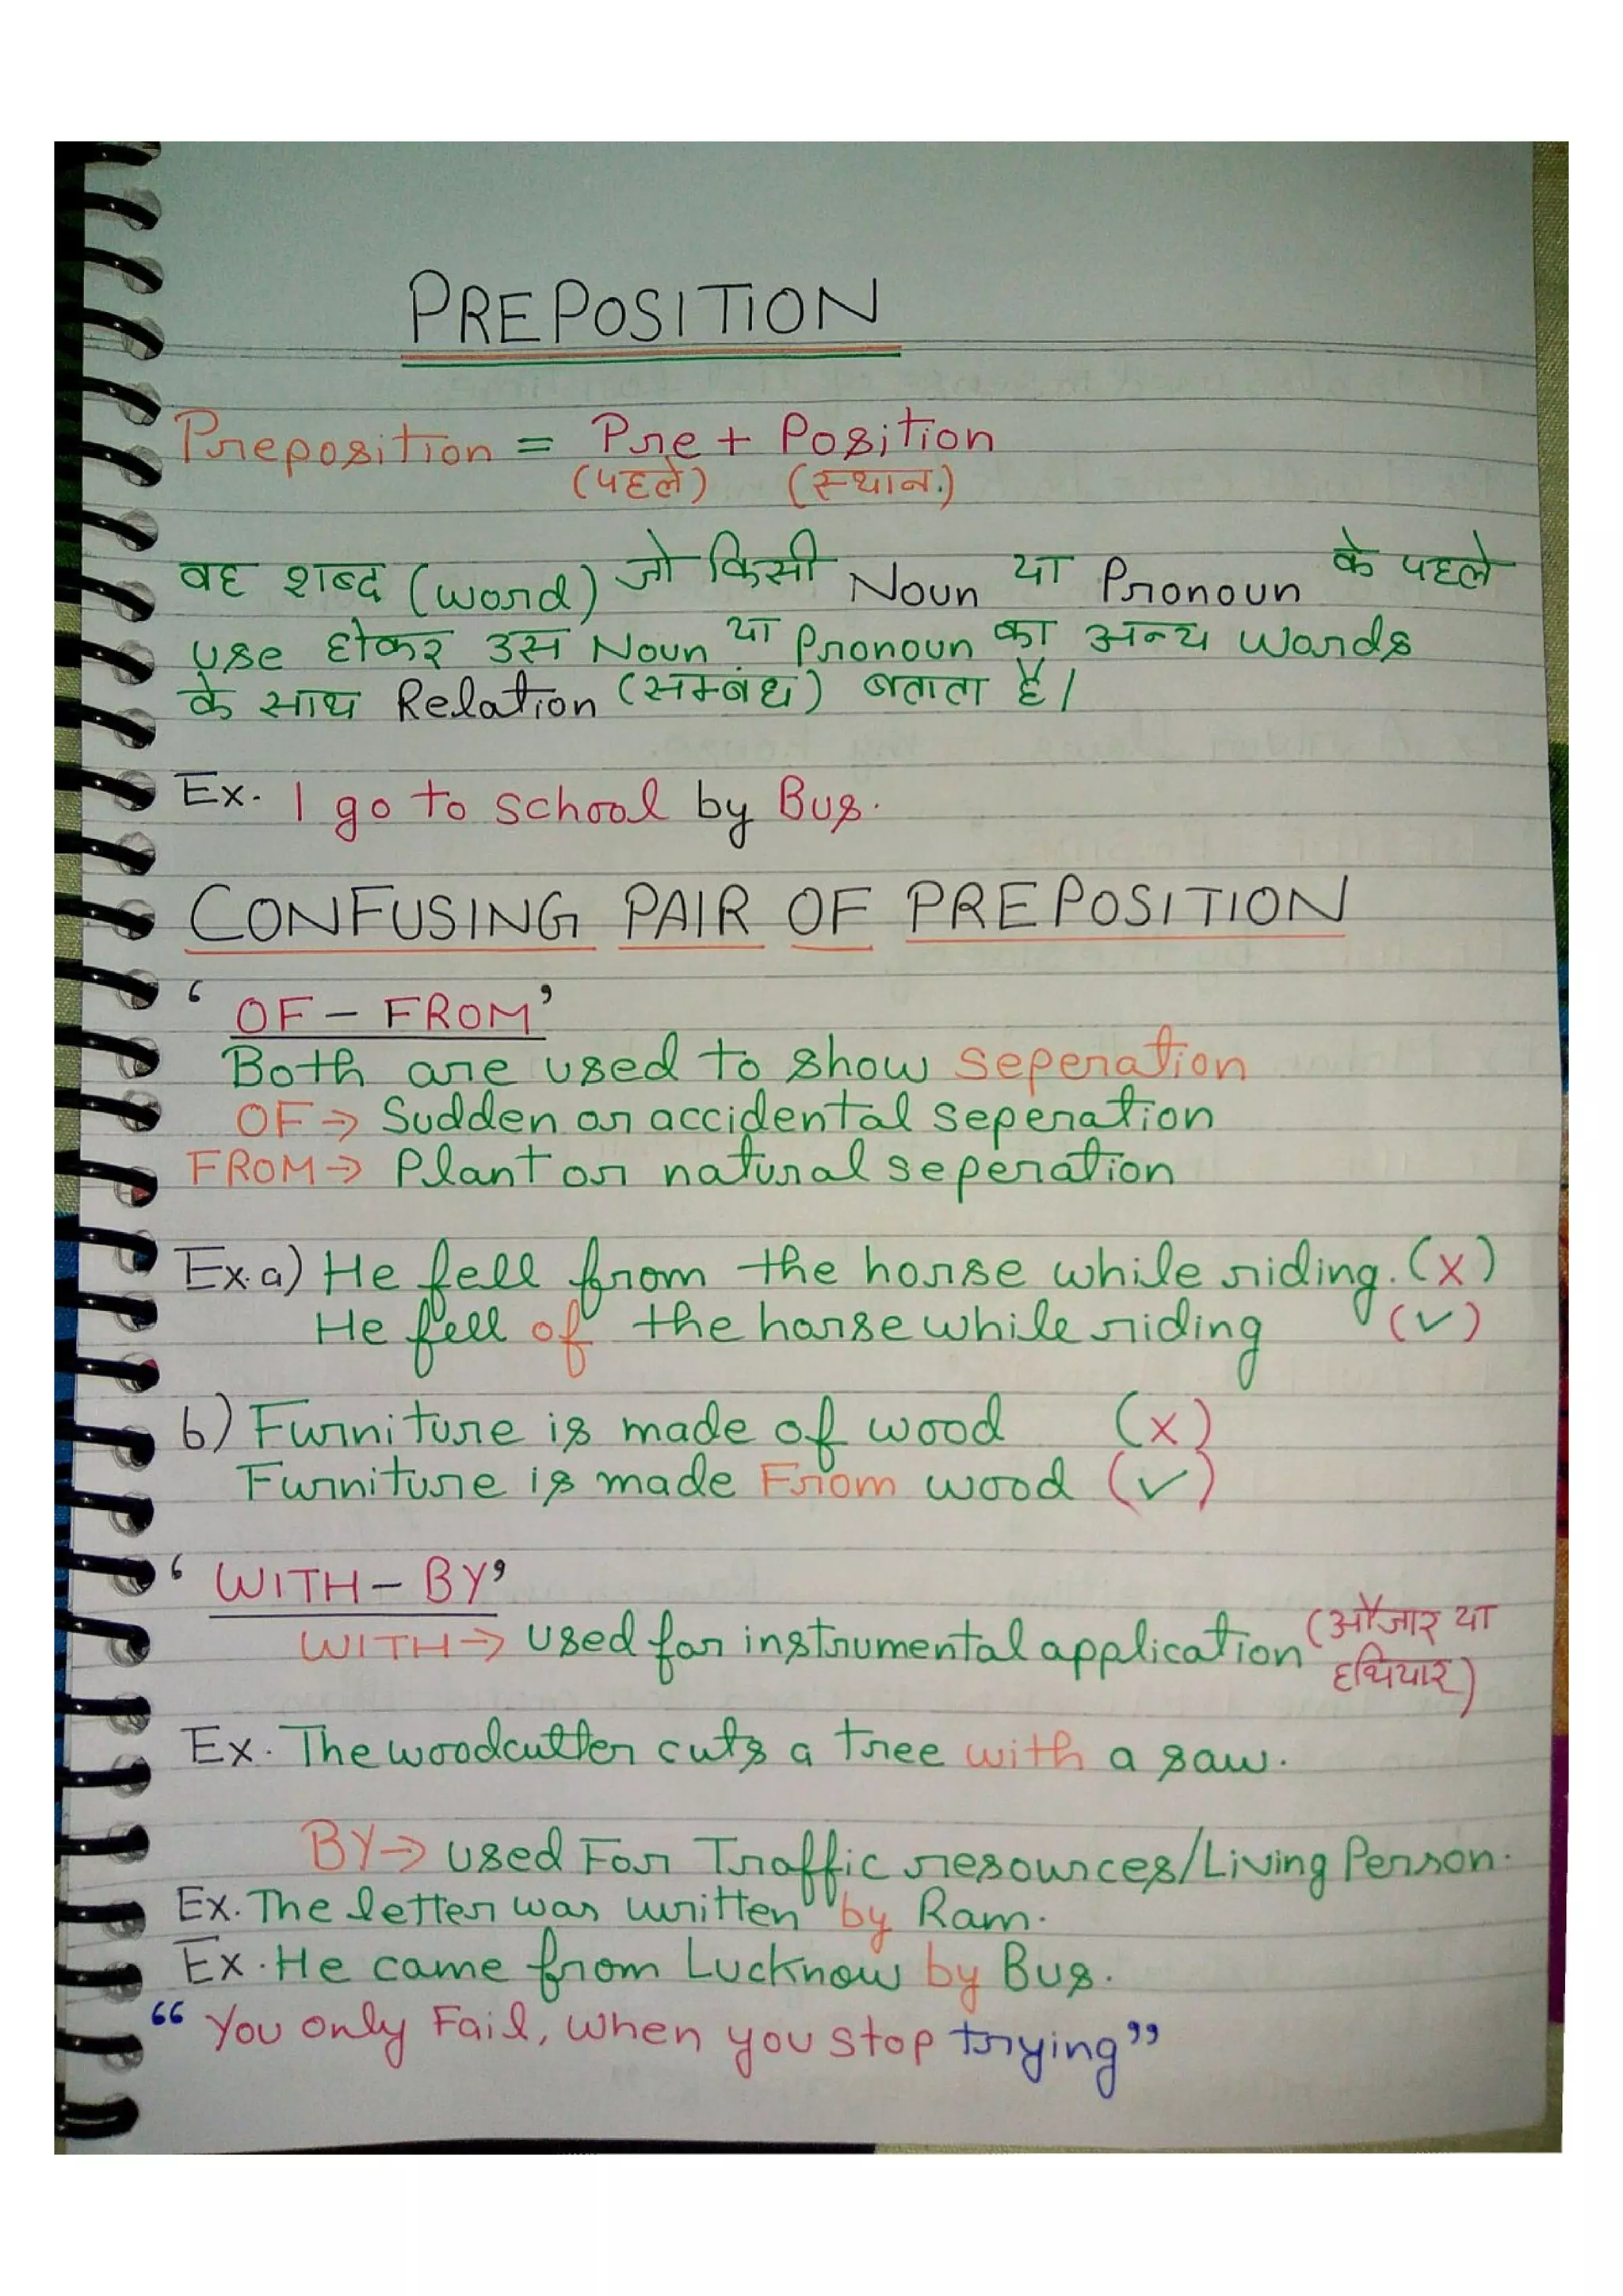 PREPOSITION
Preposition = Pre + Position
(पहले) (स्थान.)
वह शब्द (word) जो किसी Noun या Pronoun के पहले
use होकर उस Noun या Pronoun का अन्य words
के साथ Relation (सम्बंध) बताता है।
Ex. I go to school by Bus.
CONFUSING PAIR OF PREPOSITION
‘OF – FROM’
Both are used to show seperation
OF → Sudden or accidental seperation
FROM → Plant or natural seperation
Ex. a) He fell from the horse while riding. (x)
He fell of the horse while riding (✓)
b) Furniture is made of wood (x)
Furniture is made From wood (✓)
‘WITH – BY’
WITH → used for instrumental application (औजार या
हथियार)
Ex. The woodcutter cuts a tree with a saw.
BY → used For Traffic resources/Living Person.
Ex. The letter was written by Ram.
Ex. He came from Lucknow by Bus.
“You only Fail, when you stop trying”